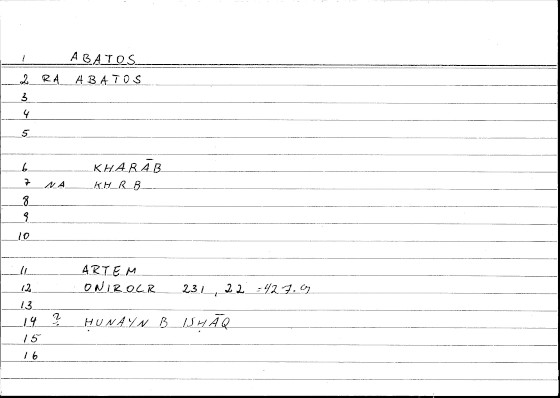 1 ABATOS
2 RA ABATOS
3
4
5
6 KHARĀB
7 NA KHRB
8
9
10
11 ARTEM
12 ONIROCR 231, 22 = 427.9
13
14 ? ḤUNAYN B ISḤĀQ
15
16